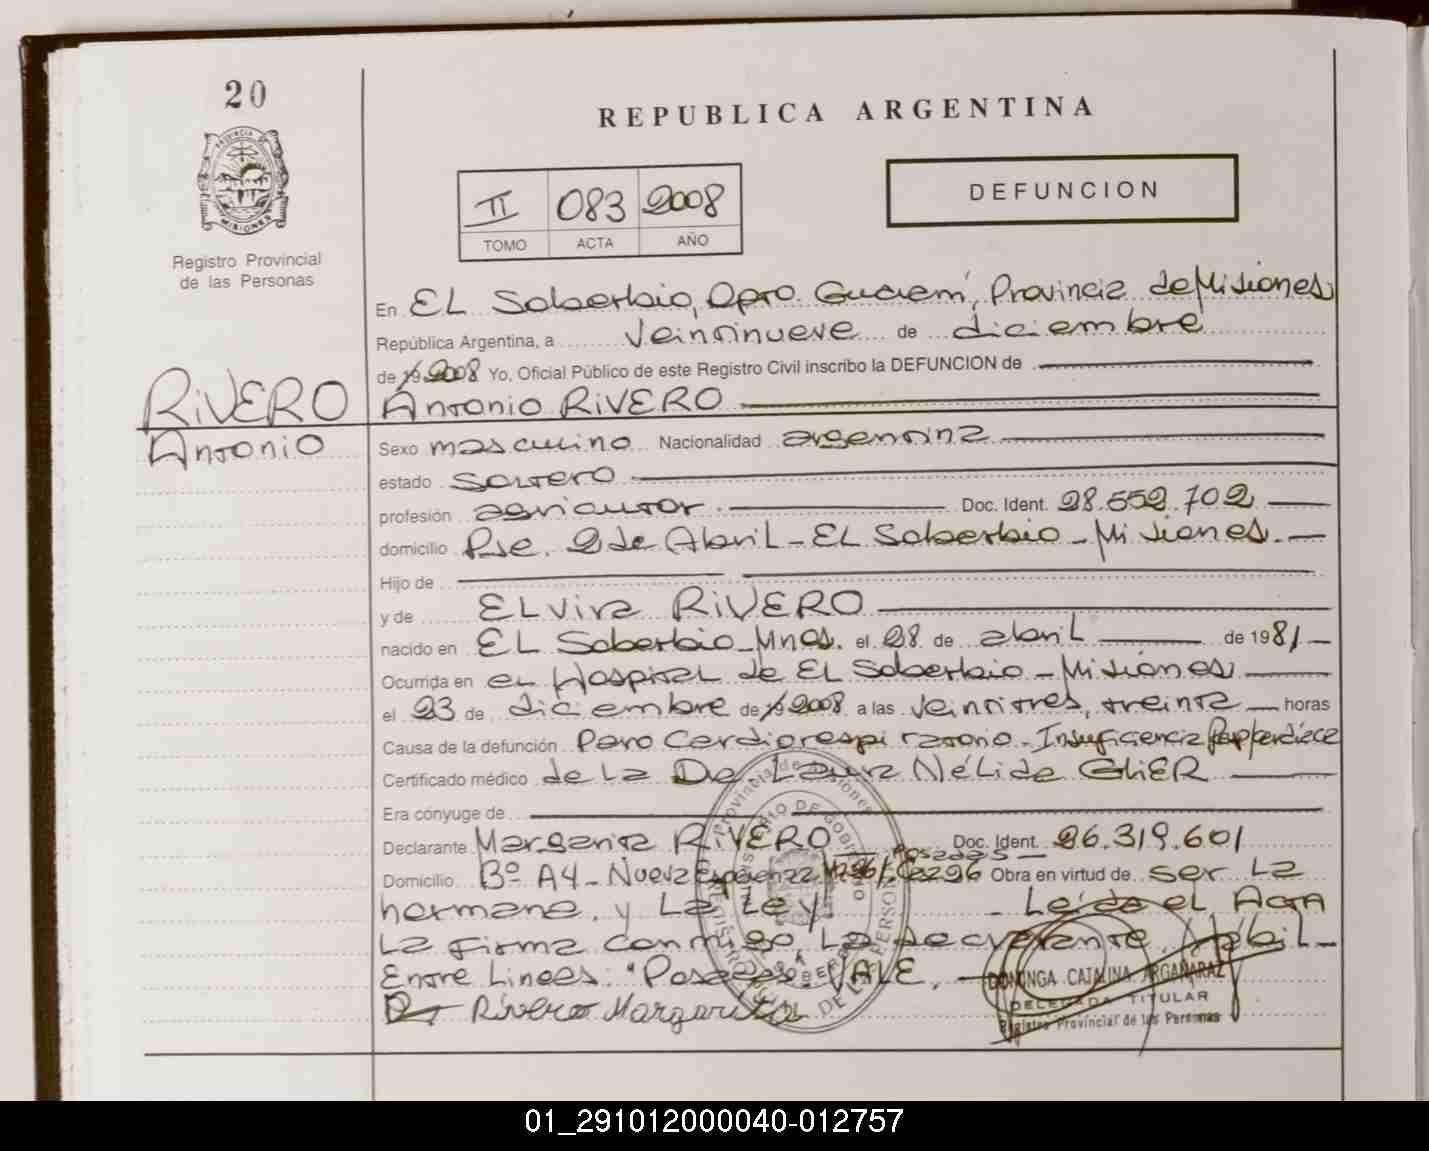 20
REPUBLICA ARGENTINA
PROVINCIA DE
MISIONES
II 083 2008
TOMO ACTA AÑO
DEFUNCION
Registro Provincial
de las Personas
En EL Soberbio, Dpto. Guaraní, Provincia de Misiones
República Argentina, a veintinueve de diciembre
de 19 2008 Yo, Oficial Público de este Registro Civil inscribo la DEFUNCION de
RIVERO Antonio RIVERO
Antonio
Sexo masculino Nacionalidad argentina
estado Soltero
profesión agricultor Doc. Ident. 28.552.702
domicilio Pje. 2 de Abril - EL Soberbio - Misiones.
Hijo de
y de ELvira RIVERO
nacido en EL Soberbio - Mnes. el 28 de abril de 1981
Ocurrida en eL Hospital de EL Soberbio - Misiones
el 23 de diciembre de 19 2008 a las veintitres, treinta horas
Causa de la defunción Paro Cardiorespiratorio - Insuficiencia
Certificado médico de La Dra. Laura Nélida GLIER
Era cónyuge de
Declarante Margarita RIVERO Doc. Ident. 26.319.601
Posadas
Domicilio Bº A4 - Nueva Esperanza Obra en virtud de ser La
hermana, y La Ley - Leída el Acta
La firma conmigo, La declarante, hábil -
Entre Lineas: "Posadas". VALE.
Rivero Margarita
Provincia de Misiones
MINISTERIO DE GOBIERNO
DONONGA CATALINA ARGAÑARAZ
DELEGADA TITULAR
Registro Provincial de las Personas
01_291012000040-012757